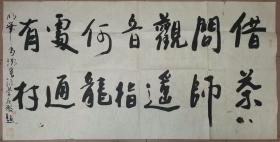 借問觀音何處有
茶師遙指龍通村